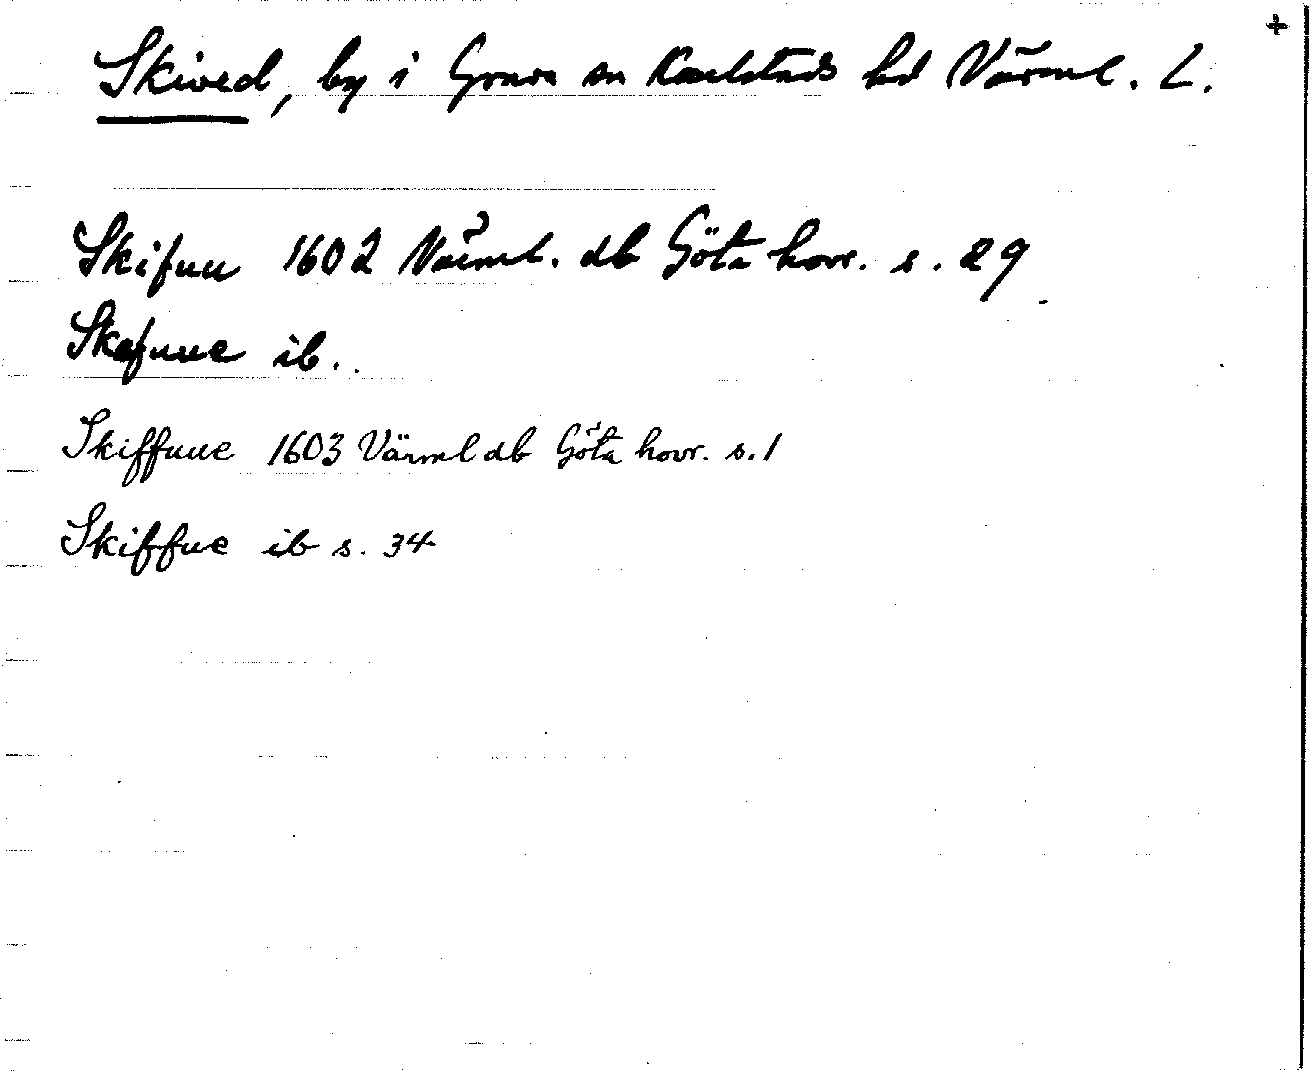 +
Skived, by i Grava sn Karlstads hd Värml. L.
Skifuu 1602 Värml. db Göta hovr. s. 29
Skefuue ib.
Skiffuue 1603 Värml db Göta hovr. s. 1
Skiffue ib s. 34